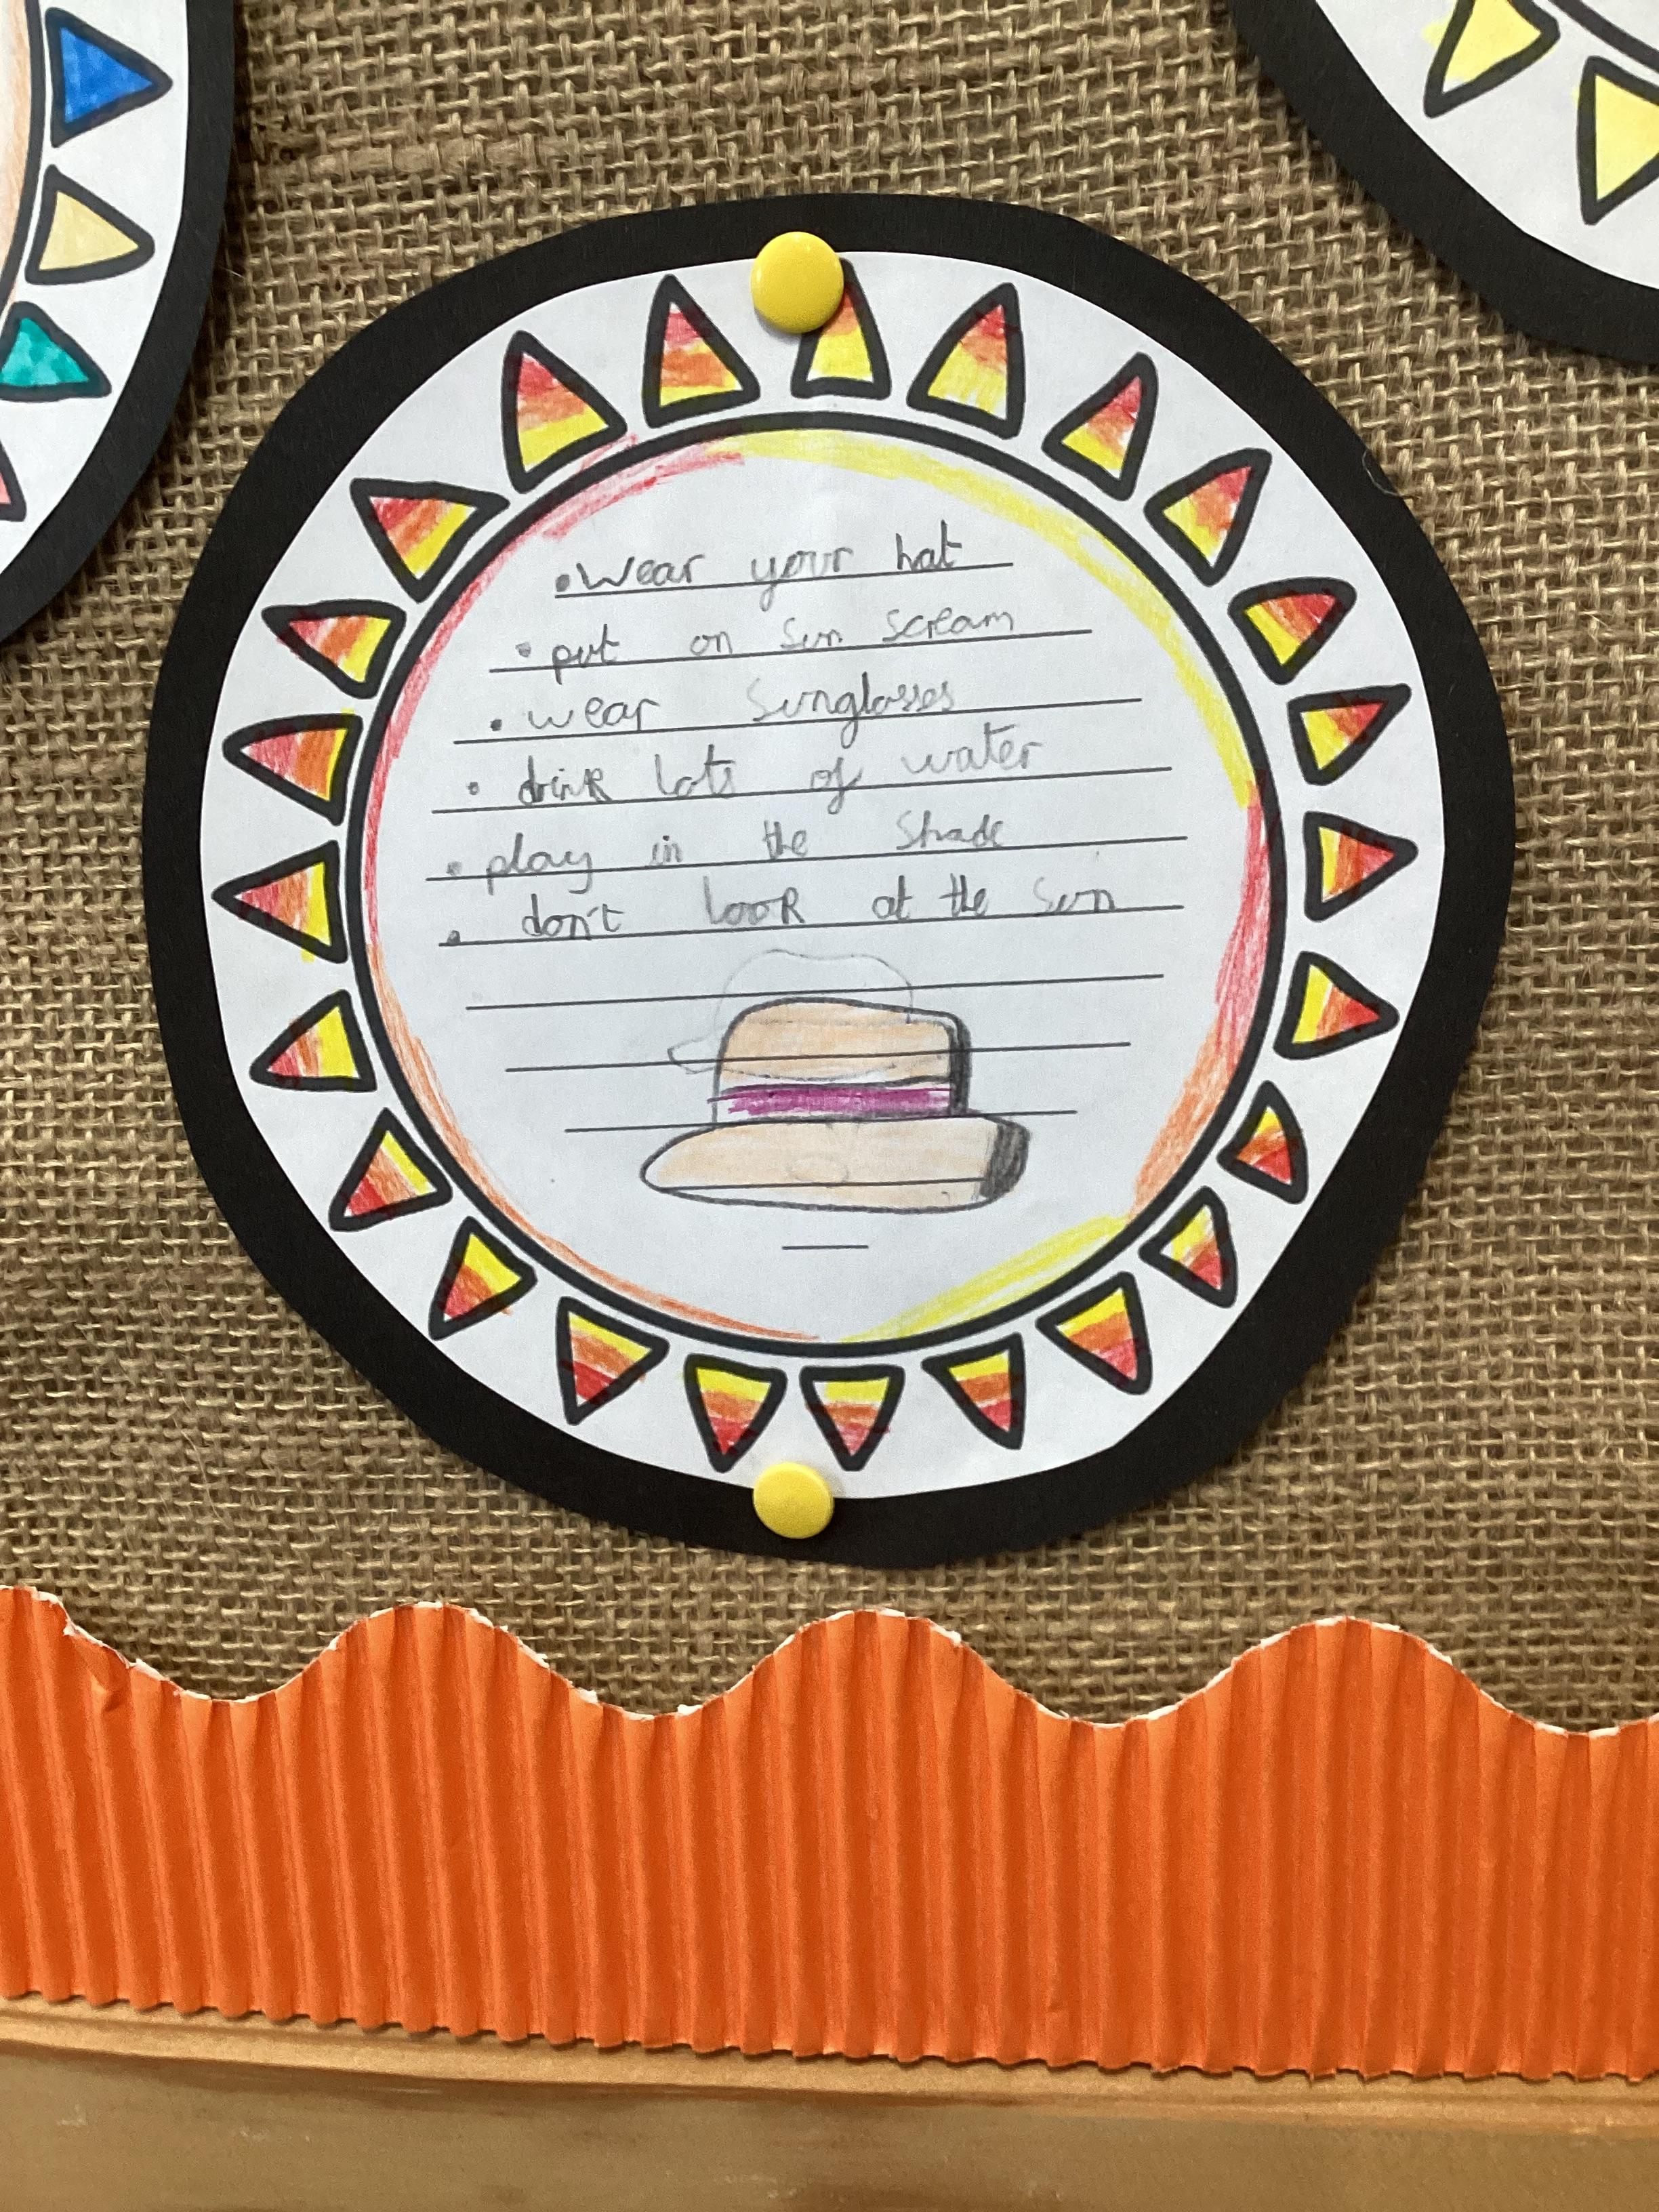 • wear your hat
• put on sun scream
• wear sunglasses
• drink lots of water
• play in the shade
• don't look at the sun